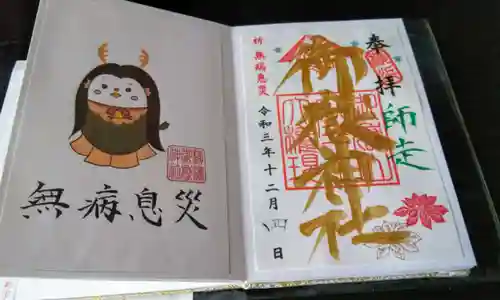 奉拝
師走
御嶽神社
祈 無病息災
令和三年十二月四日
無病息災